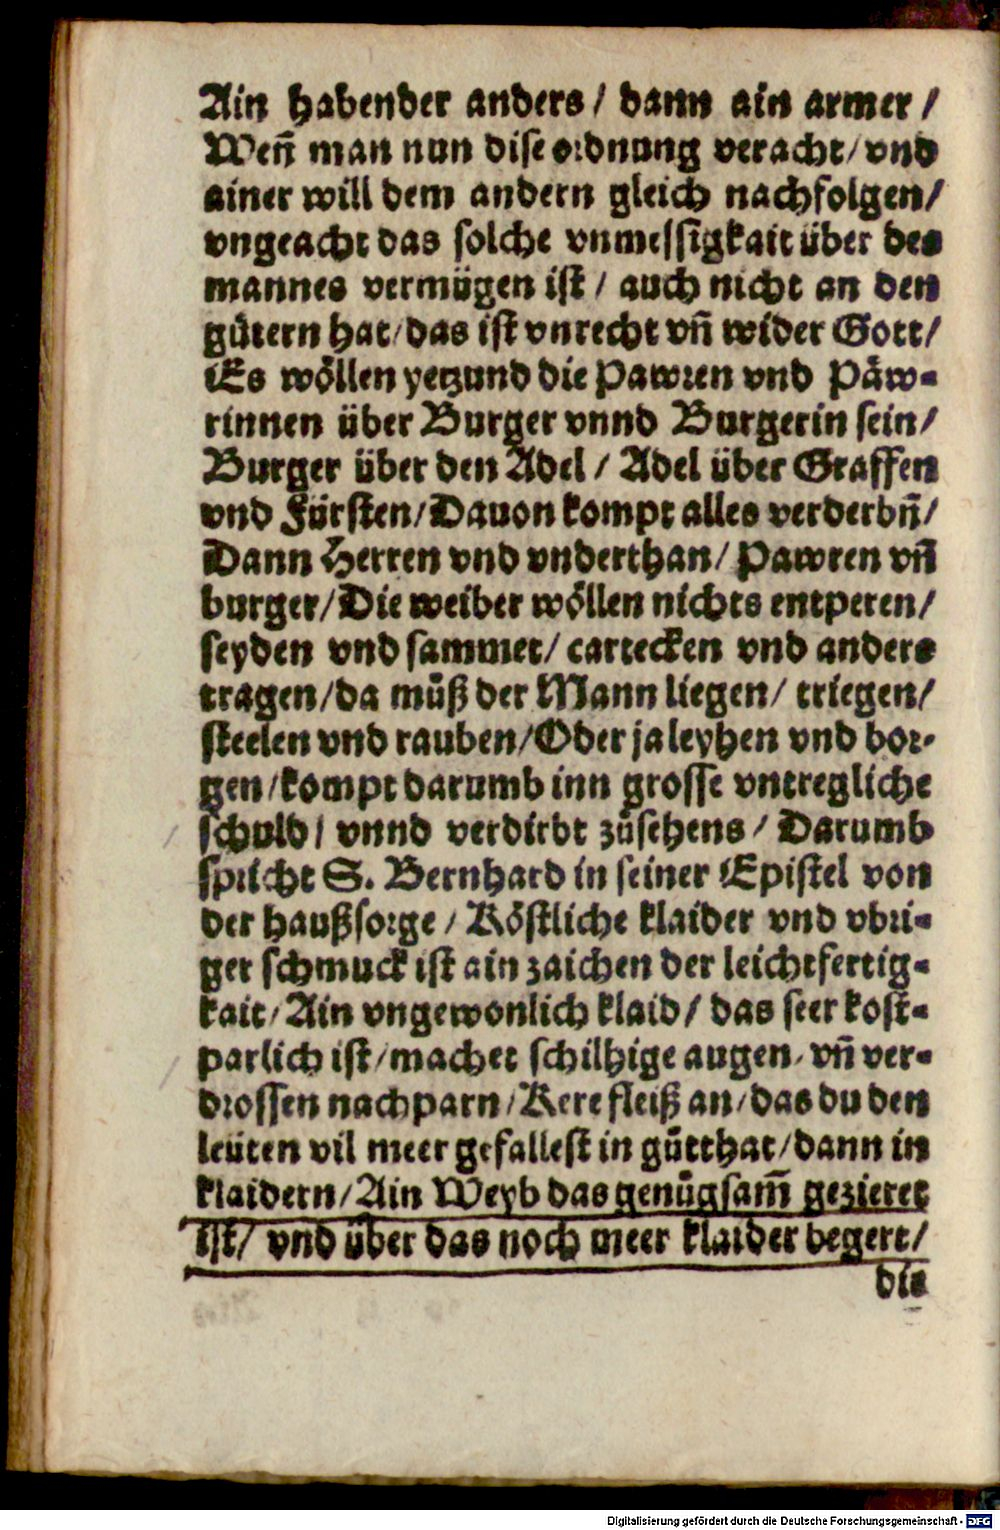 Ain habender anders / dann ain armer /
Weñ man nun dise ordnung veracht / vnd
ainer will dem andern gleich nachfolgen /
vngeacht das solche vnmessigkait über des
mannes vermügen ist / auch nicht an den
gütern hat / das ist vnrecht vñ wider Gott /
Es wöllen yetzund die Pawren vnd Päw-
rinnen über Burger vnnd Burgerin sein /
Burger über den Adel / Adel über Graffen
vnd Fürsten / Dauon kompt alles verderbñ /
Dann Herren vnd vnderthan / Pawren vñ
burger / Die weiber wöllen nichts entperen /
seyden vnd sammet / cartecken vnd anders
tragen / da müß der Mann liegen / triegen /
steelen vnd rauben / Oder ja leyhen vnd bor-
gen / kompt darumb inn grosse vntregliche
schuld / vnnd verdirbt züsehens / Darumb
spricht S. Bernhard in seiner Epistel von
der haußsorge / Köstliche klaider vnd vbri-
ger schmuck ist ain zaichen der leichtfertig-
kait / Ain vngewonlich klaid / das seer kost-
parlich ist / machet schilhige augen / vñ ver-
drossen nachparn / Kere fleiß an / das du den
leüten vil meer gefallest in gütthat / dann in
klaidern / Ain Weyb das genügsam̃ gezieret
ist / vnd über das noch meer klaider begert /
die
Digitalisierung gefördert durch die Deutsche Forschungsgemeinschaft - DFG